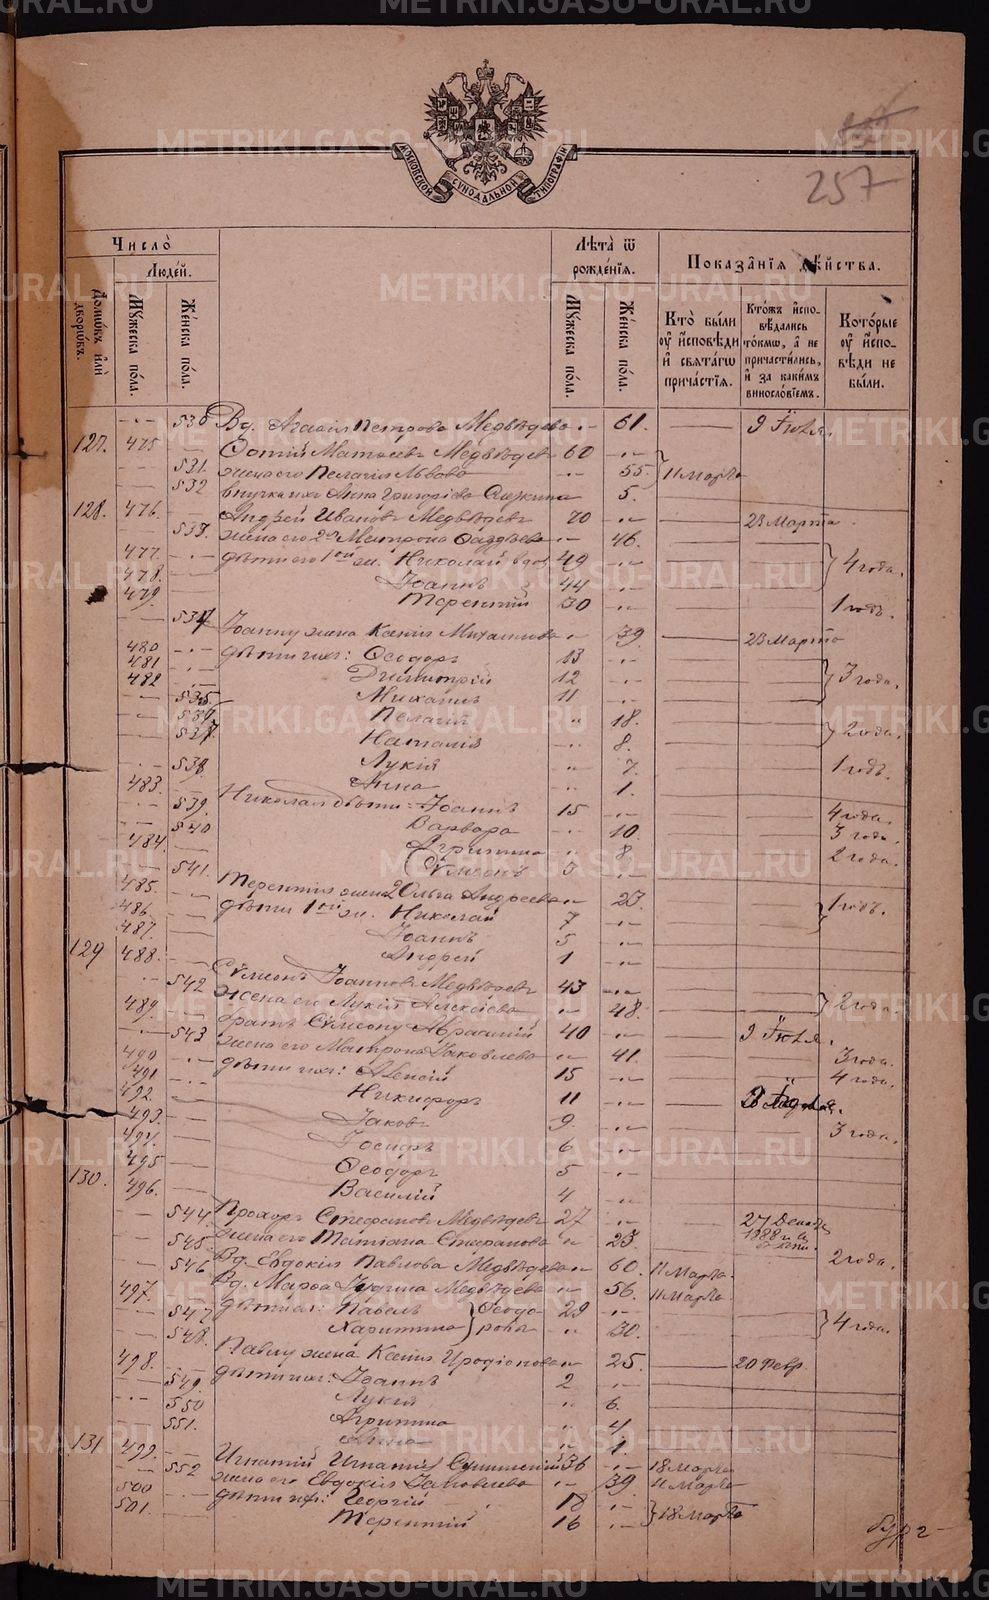 METRIKI.GASO-URAL.RU
МОСКОВСКОЙ СѴНОДАЛЬНОЙ ТИПОГРАФІИ
257
Число̀
Людей.
Домѡвъ или дворѡвъ.
Мꙋжеска пола.
Женска пола.
Лѣта ѿ рожденїѧ.
Мꙋжеска пола.
Женска пола.
Показанїѧ дѣйства.
Кто были оу исповѣди и свѧтагѡ причастїѧ.
Ктожъ исповѣдались токмѡ, а не причастились, и за какимъ винословїемъ.
Которые оу исповѣди не были.
530 Вд. Агафія Петрова Медвѣдева 61. 9 Іюля.
127. 475 Фотій Матѳеев Медвѣдев 60
531. жена его Пелагія Львова 55. 11 Марта
532 внучка их Анна Григоріева 5.
128. 476. Андрей Иванов Медвѣдев 70 23 Марта
533. жена его 2я Матрона 46.
477. дѣти его 1ой ж. Николай вдов 49 4 года.
478. Іоаннъ 44
479. Терентій 30 1 годъ.
534 Іоанну жена Ксенія Михаилова 39 23 Марта
480 дѣти их: Ѳеодоръ 13
481 Димитрій 12 3 года.
482 Михаилъ 11
535. Пелагія 18.
536 Наталія 8. 2 года.
537. Лукія 7.
538. Анна 1. 1 годъ.
483. Николая дѣти: Іоаннъ 15 4 года.
539. Варвара 10. 3 года
540 Агрипина 8 2 года.
484. Сѵмеонъ 3
541. Терентія жена 2 Ольга Андреева 23. 1 годъ.
485. дѣти 1ой ж. Николай 7
486. Іоаннъ 5
487. Андрей 1
129 488. Сѵмеонъ Іоаннов Медвѣдев 43
542 жена его Лукія Алексіева 48. 2 года
489. братъ Сѵмеону Авраамій 40 9 Іюля.
543 жена его Матрона Іаковлева 41. 3 года.
490 дѣти их: Алексій 15 4 года.
491 Никифоръ 11
492 Іаковъ 9 3 года.
493. Іосифъ 6
494. Ѳеодоръ 5
495 Василій 4
130. 496. Прохоръ Стефанов Медвѣдев 27 27 Декаб. 1888 г.
544 жена его Татіана Стефанова 23.
545 Вд. Евдокія Павлова Медвѣдева 60. 11 Марта. 2 года.
546 Вд. Марѳа Медвѣдева 56. 11 Марта
497. дѣти их: Павелъ 29
547 Харитина 30. 4 года.
548. Павлу жена Ксенія Иродіонова 25. 20 Февр.
498. дѣти их: Іоаннъ 2
549. Лукія 6.
550 Агрипина 4
551. Анна 1.
131 499. Игнатій Игнатіев 36 18 Марта
552 жена его Евдокія 39 11 Марта
500 дѣти их: Георгій 18
501. Терентій 16 18 Марта